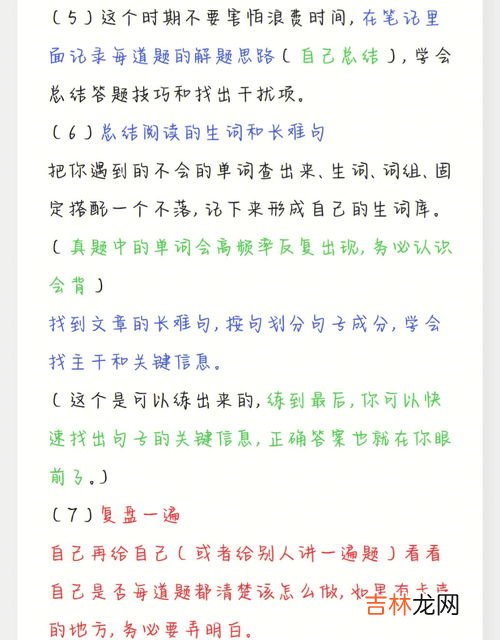 （5）这个时期不要害怕浪费时间,在笔记里
面记录每道题的解题思路(自己总结),学会
总结答题技巧和找出干扰项。
（6）总结阅读的生词和长难句
把你遇到的不会的单词查出来、生词、词组、固
定搭配一个不落,记下来形成自己的生词库。
（真题中的单词会高频率反复出现,务必认识
会背）
找到文章的长难句,按句划分句子成分,学会
找主干和关键信息。
（这个是可以练出来的,练到最后,你可以快
速找出句子的关键信息,正确答案也就在你眼
前了。）
（7）复盘一遍
自己再给自己(或者给别人讲一遍题)看看
自己是否每道题都清楚该怎么做,如果有卡壳
的地方,务必要弄明白。
吉林龙网